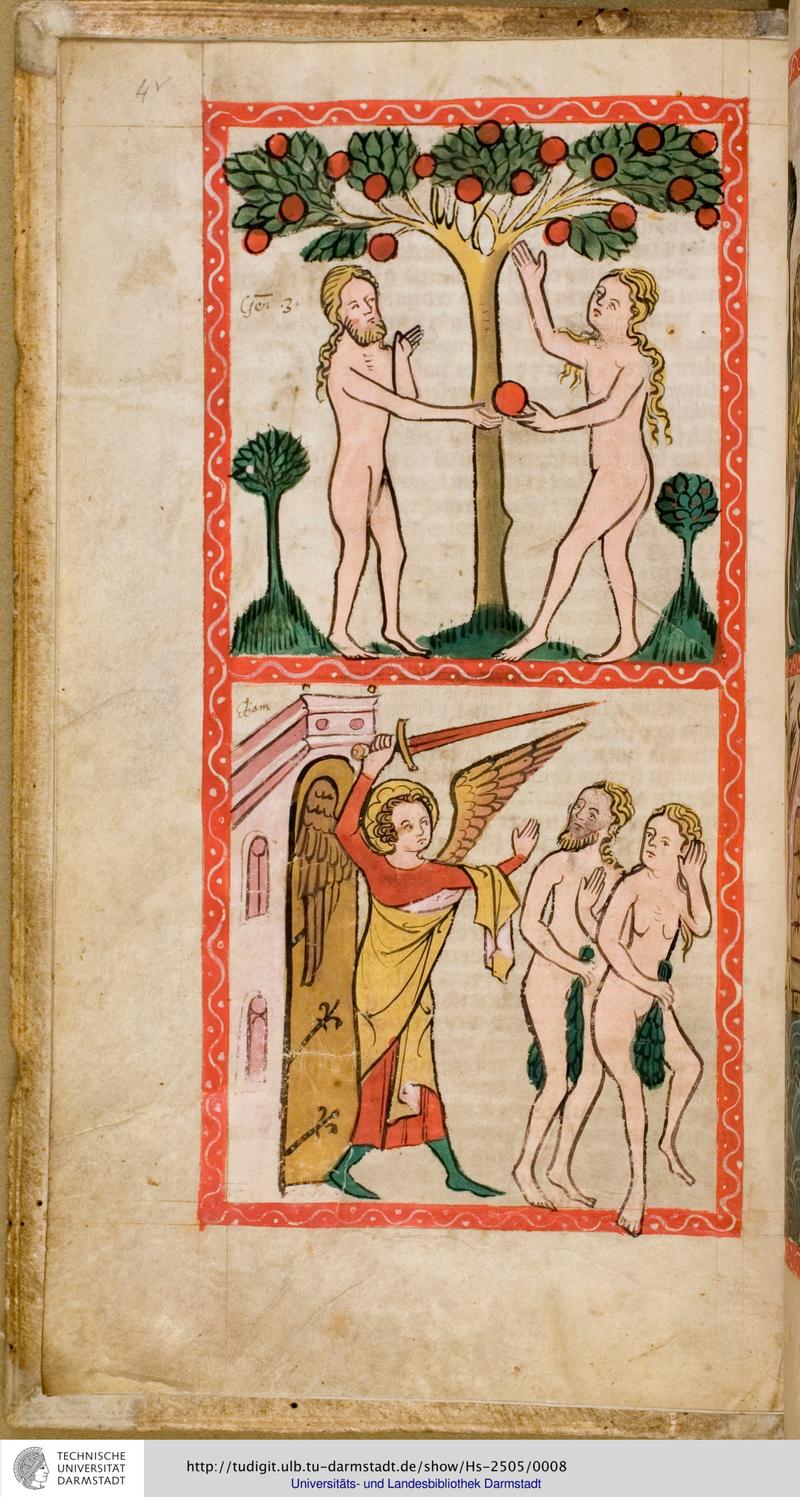 4v
Gen̄ .3.
TECHNISCHE
UNIVERSITÄT
DARMSTADT
http://tudigit.ulb.tu-darmstadt.de/show/Hs-2505/0008
Universitäts- und Landesbibliothek Darmstadt